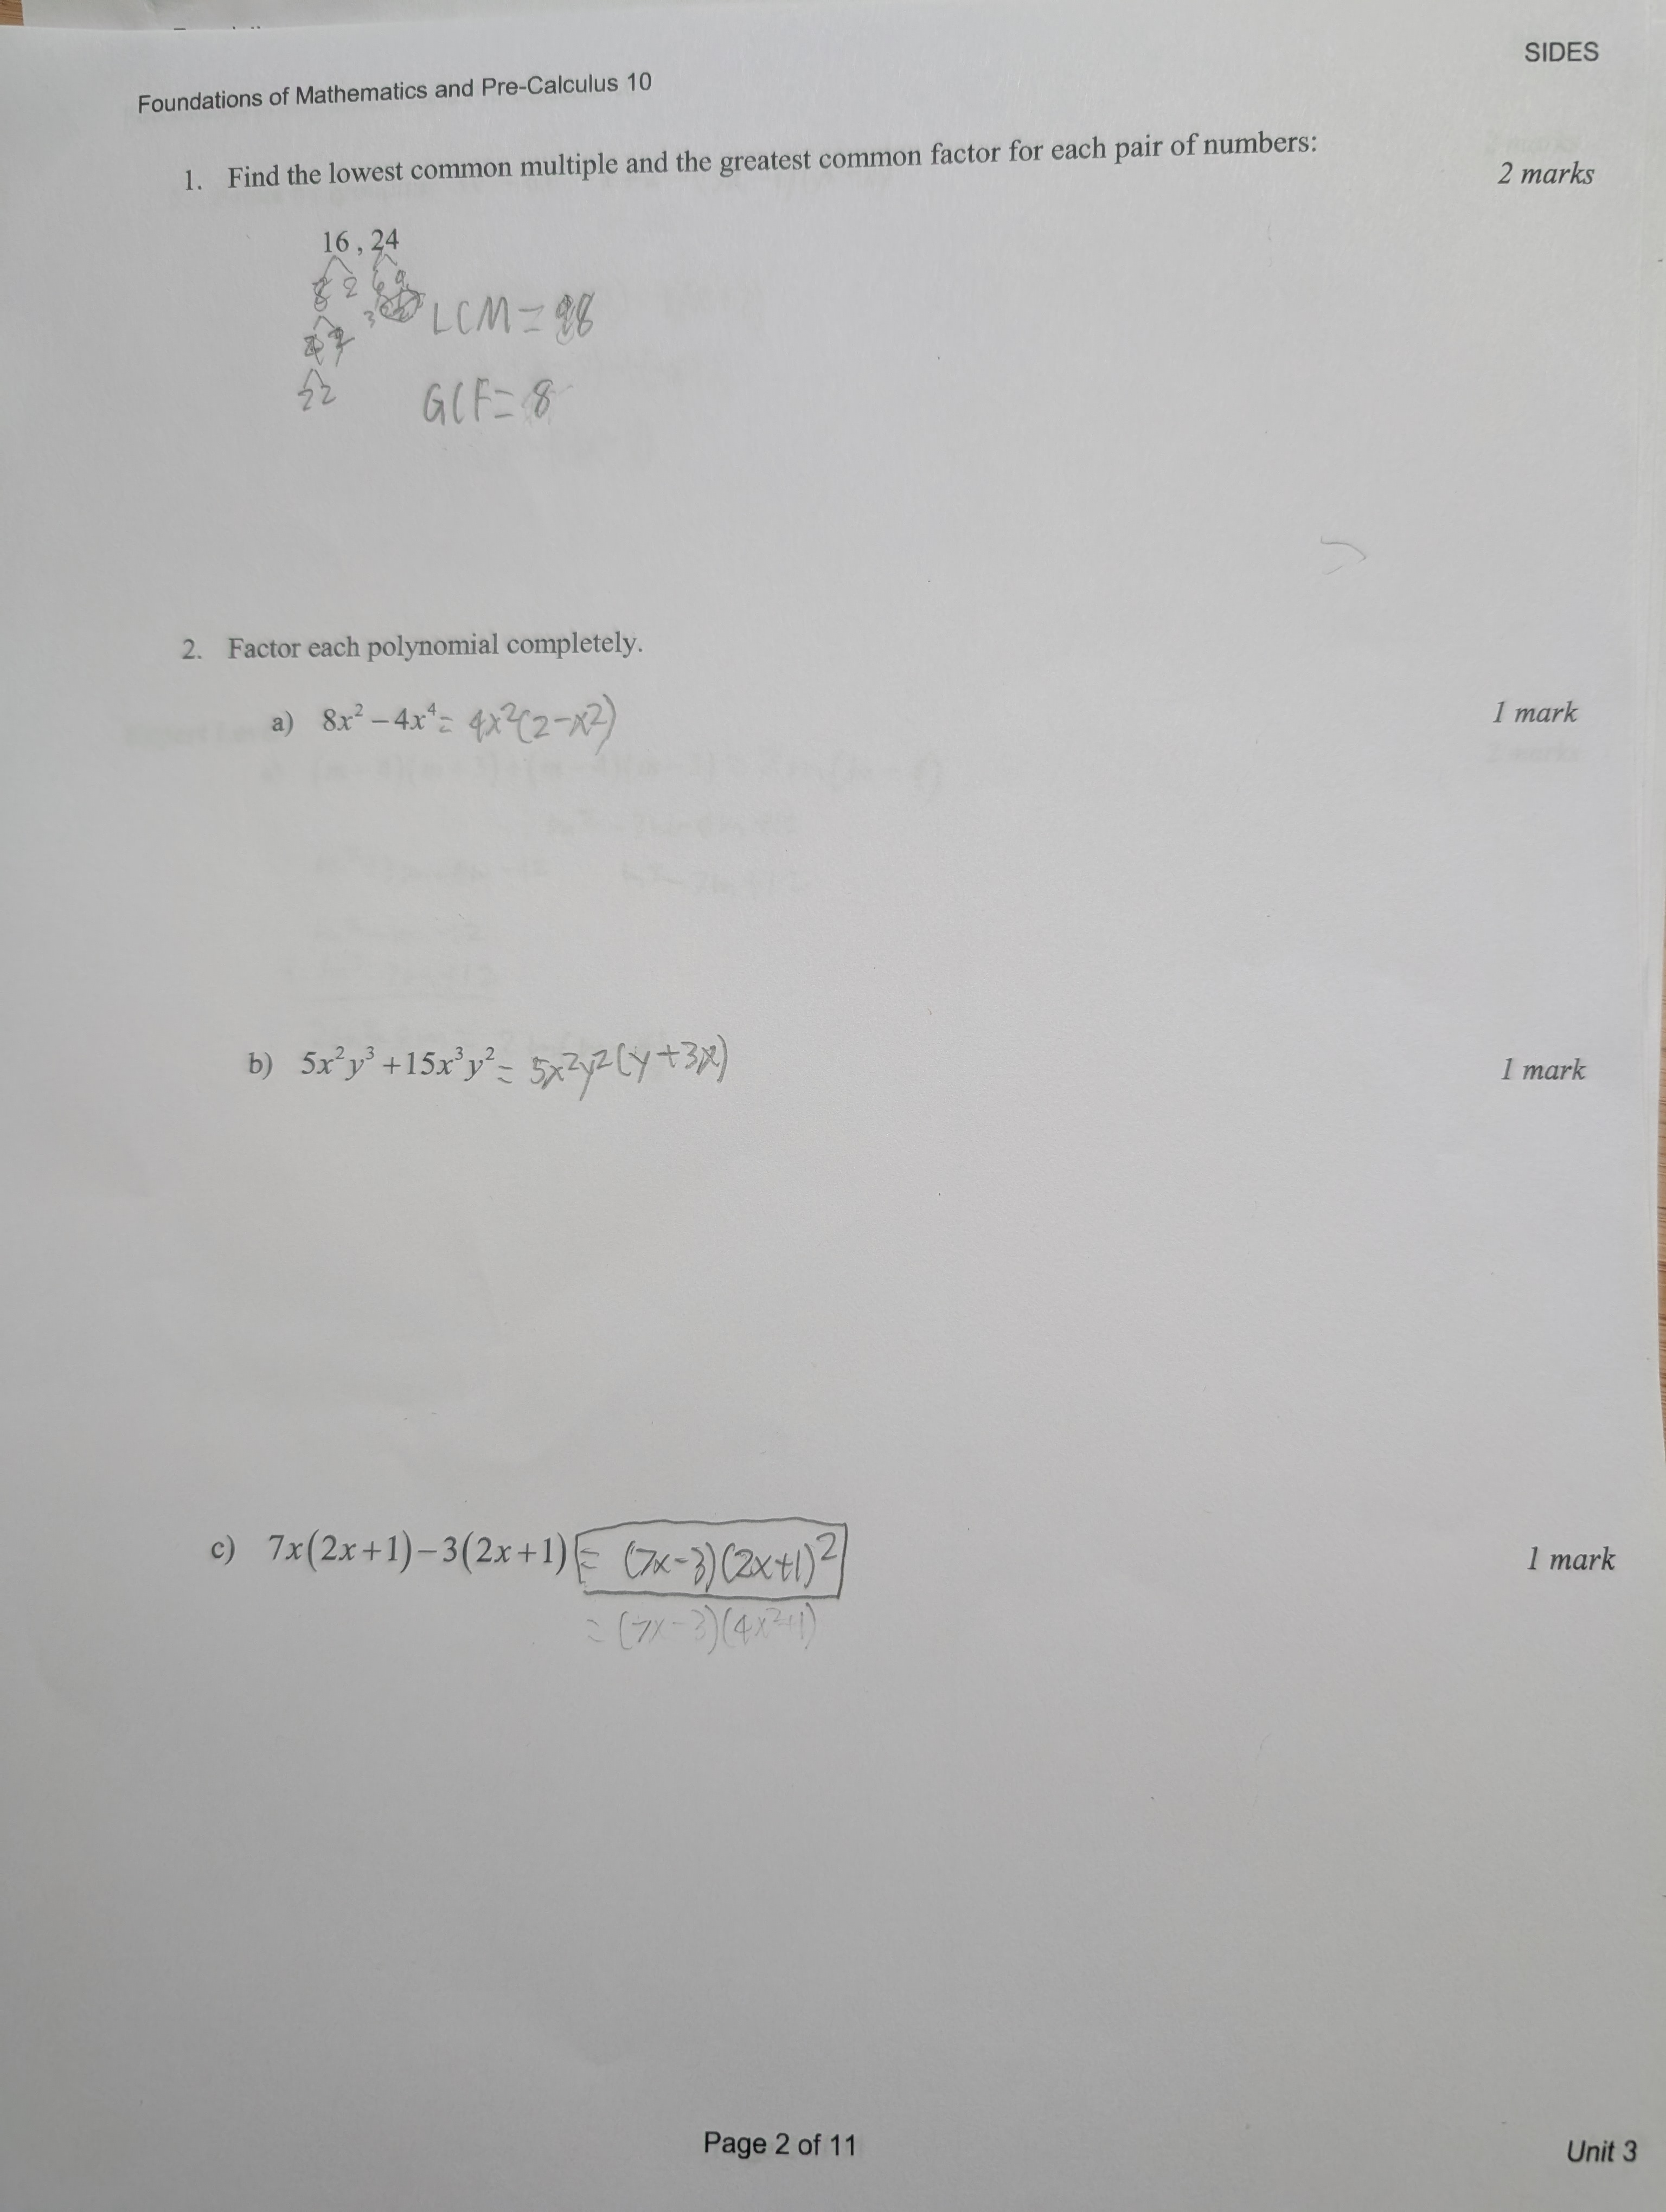 SIDES
Foundations of Mathematics and Pre-Calculus 10
1. Find the lowest common multiple and the greatest common factor for each pair of numbers:
2 marks
16 , 24
8 2 6
3
LCM =
2 2
GCF = 8
2. Factor each polynomial completely.
a) 8x² – 4x⁴ = 4x²(2-x²)
1 mark
b) 5x²y³ + 15x³y² = 5x²y²(y+3x)
1 mark
c) 7x(2x+1)–3(2x+1) = (7x-3)(2x+1)²
1 mark
= (7x-3)(4x²+1)
Page 2 of 11
Unit 3